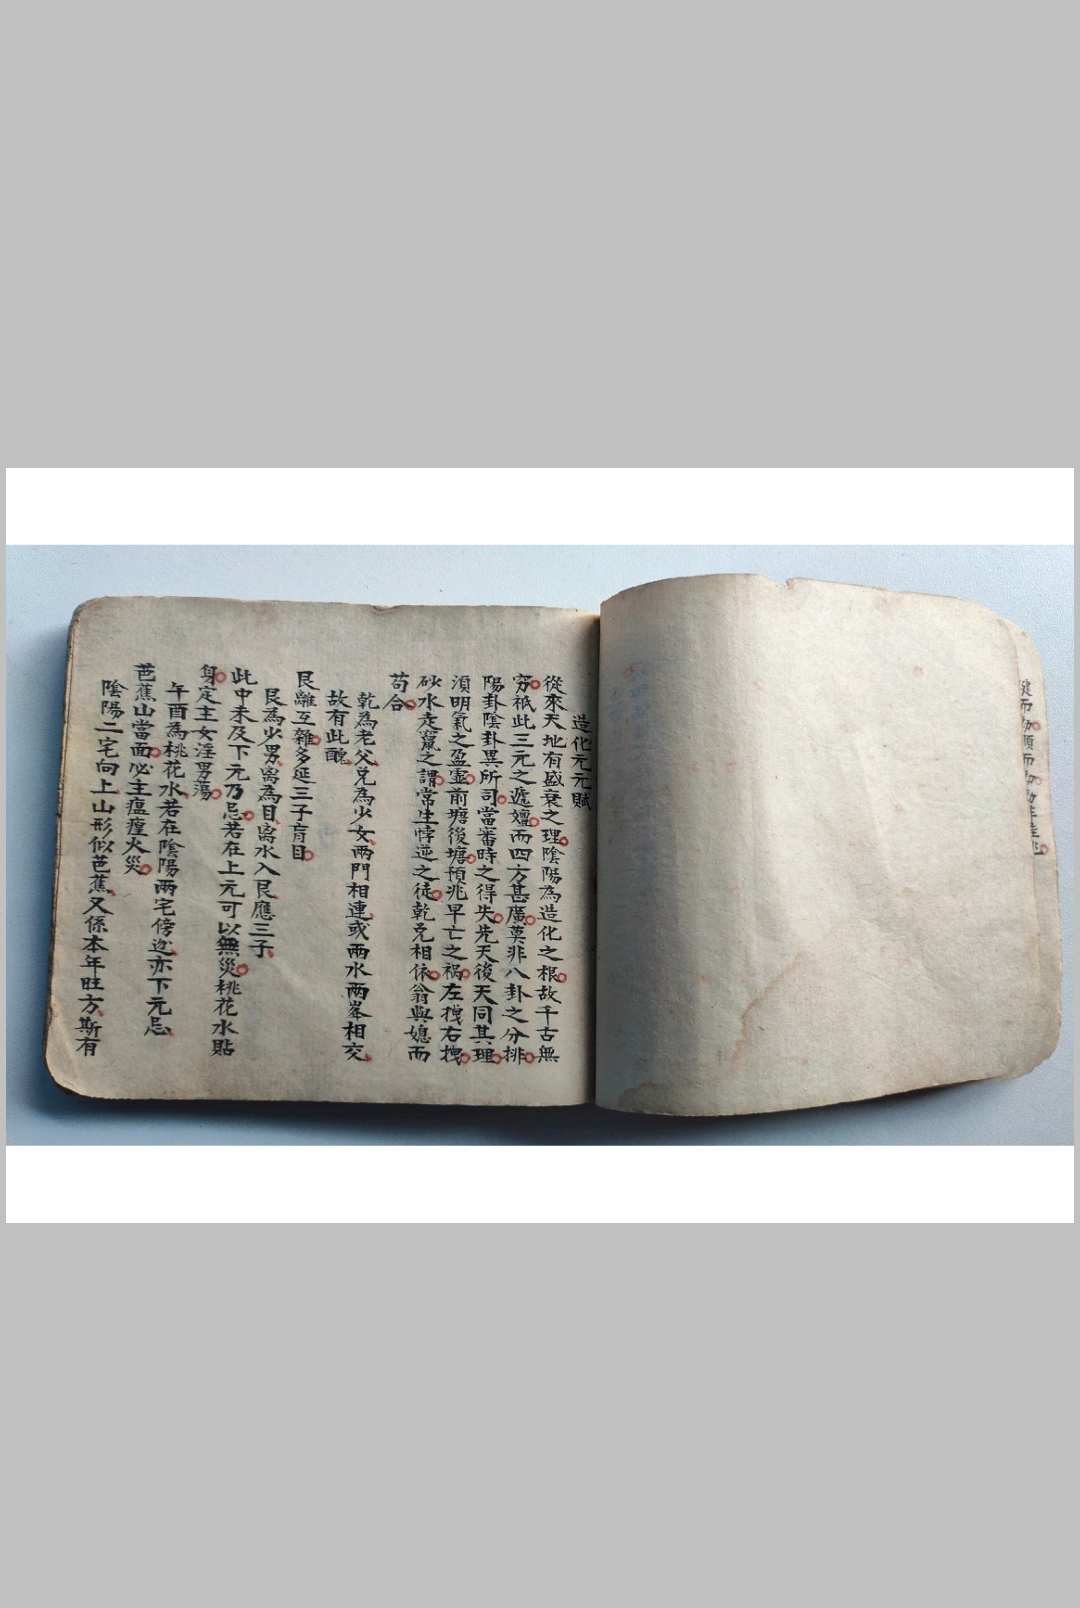 造化元元賦
從來天地有盛衰之理陰陽為造化之根故千古無
窮祇此三元之遞嬗而四方甚廣莫非八卦之分排
陽卦陰卦異所司當審時之得失先天後天同其理
須明氣之盈虛前塘後塘預兆早亡之禍左拽右拽
砂水走竄之謂常生悖逆之徒乾兌相依翁與媳而
苟合
乾為老父兌為少女兩門相連或兩水兩峯相交
故有此醜
艮離互雜多延三子肓目
艮為少男离為目离水入艮應三子
此中未及下元乃忌若在上元可以無災桃花水貼
身定主女淫男蕩
午酉為桃花水若在陰陽兩宅傍迯亦下元忌
芭蕉山當面必主瘟瘽火災
陰陽二宅向上山形似芭蕉又係本年旺方斯有